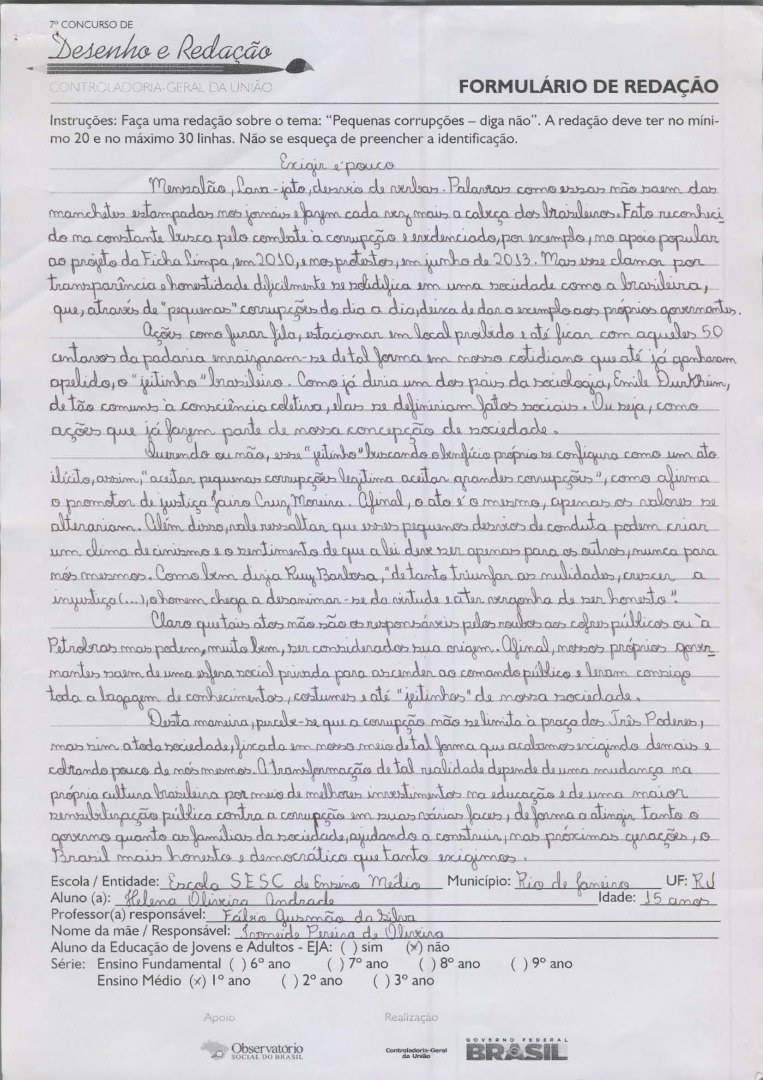 7º CONCURSO DE
Desenho e Redação
CONTROLADORIA-GERAL DA UNIÃO
FORMULÁRIO DE REDAÇÃO
Instruções: Faça uma redação sobre o tema: “Pequenas corrupções – diga não”. A redação deve ter no míni-
mo 20 e no máximo 30 linhas. Não se esqueça de preencher a identificação.
Exigir é pouco
Mensalão, Lava-jato, desvio de verbas. Palavras como essas não saem das
manchetes estampadas nos jornais e fazem cada vez mais a cabeça dos brasileiros. Fato reconheci
do na constante busca pelo combate à corrupção e evidenciado, por exemplo, no apoio popular
ao projeto da Ficha Limpa, em 2010, e nos protestos, em junho de 2013. Mas esse clamor por
transparência e honestidade dificilmente se solidifica em uma sociedade como a brasileira,
que, através de "pequenas" corrupções do dia a dia, deixa de dar o exemplo aos próprios governantes.
Ações como furar fila, estacionar em local proibido e até ficar com aqueles 50
centavos da padaria enraizaram-se de tal forma em nosso cotidiano que até já ganharam
apelido, o "jeitinho" brasileiro. Como já diria um dos pais da sociologia, Émile Durkheim,
de tão comuns à consciência coletiva, elas se definiriam fatos sociais. Ou seja, como
ações que já fazem parte de nossa concepção de sociedade.
Querendo ou não, esse "jeitinho" buscando o benefício próprio se configura como um ato
ilícito, assim, "aceitar pequenas corrupções legitima aceitar grandes corrupções", como afirma
o promotor de justiça Jairo Cruz Moreira. Afinal, o ato é o mesmo, apenas os valores se
alterariam. Além disso, vale ressaltar que esses pequenos desvios de conduta podem criar
um clima de cinismo e o sentimento de que a lei deve ser apenas para os outros, nunca para
nós mesmos. Como bem dizia Ruy Barbosa, "de tanto triunfar as nulidades, crescer a
injustiça (...), o homem chega a desanimar-se da virtude e a ter vergonha de ser honesto".
Claro que tais atos não são os responsáveis pelos roubos aos cofres públicos ou à
Petrobras mas podem, muito bem, ser considerados sua origem. Afinal, nossos próprios gover
nantes saem de uma esfera social privada para ascender ao comando público e levam consigo
toda a bagagem de conhecimentos, costumes e até "jeitinhos" de nossa sociedade.
Desta maneira, percebe-se que a corrupção não se limita à praça dos Três Poderes,
mas sim a toda sociedade, fixada em nosso meio de tal forma que acabamos exigindo demais e
cobrando pouco de nós mesmos. A transformação de tal realidade depende de uma mudança na
própria cultura brasileira por meio de melhores investimentos na educação e de uma maior
sensibilização pública contra a corrupção em suas várias faces, de forma a atingir tanto o
governo quanto as famílias da sociedade, ajudando a construir, nas próximas gerações, o
Brasil mais honesto e democrático que tanto exigimos.
Escola / Entidade: Escola SESC de Ensino Médio Município: Rio de Janeiro UF: RJ
Aluno (a): Helena Oliveira Andrade Idade: 15 anos
Professor(a) responsável: Fábio Gusmão da Silva
Nome da mãe / Responsável: Ivoneide Pereira de Oliveira
Aluno da Educação de Jovens e Adultos - EJA: ( ) sim (x) não
Série: Ensino Fundamental ( ) 6º ano ( ) 7º ano ( ) 8º ano ( ) 9º ano
Ensino Médio (x) 1º ano ( ) 2º ano ( ) 3º ano
Apoio Realização
Observatório
SOCIAL DO BRASIL
Controladoria-Geral
da União
GOVERNO FEDERAL
BRASIL